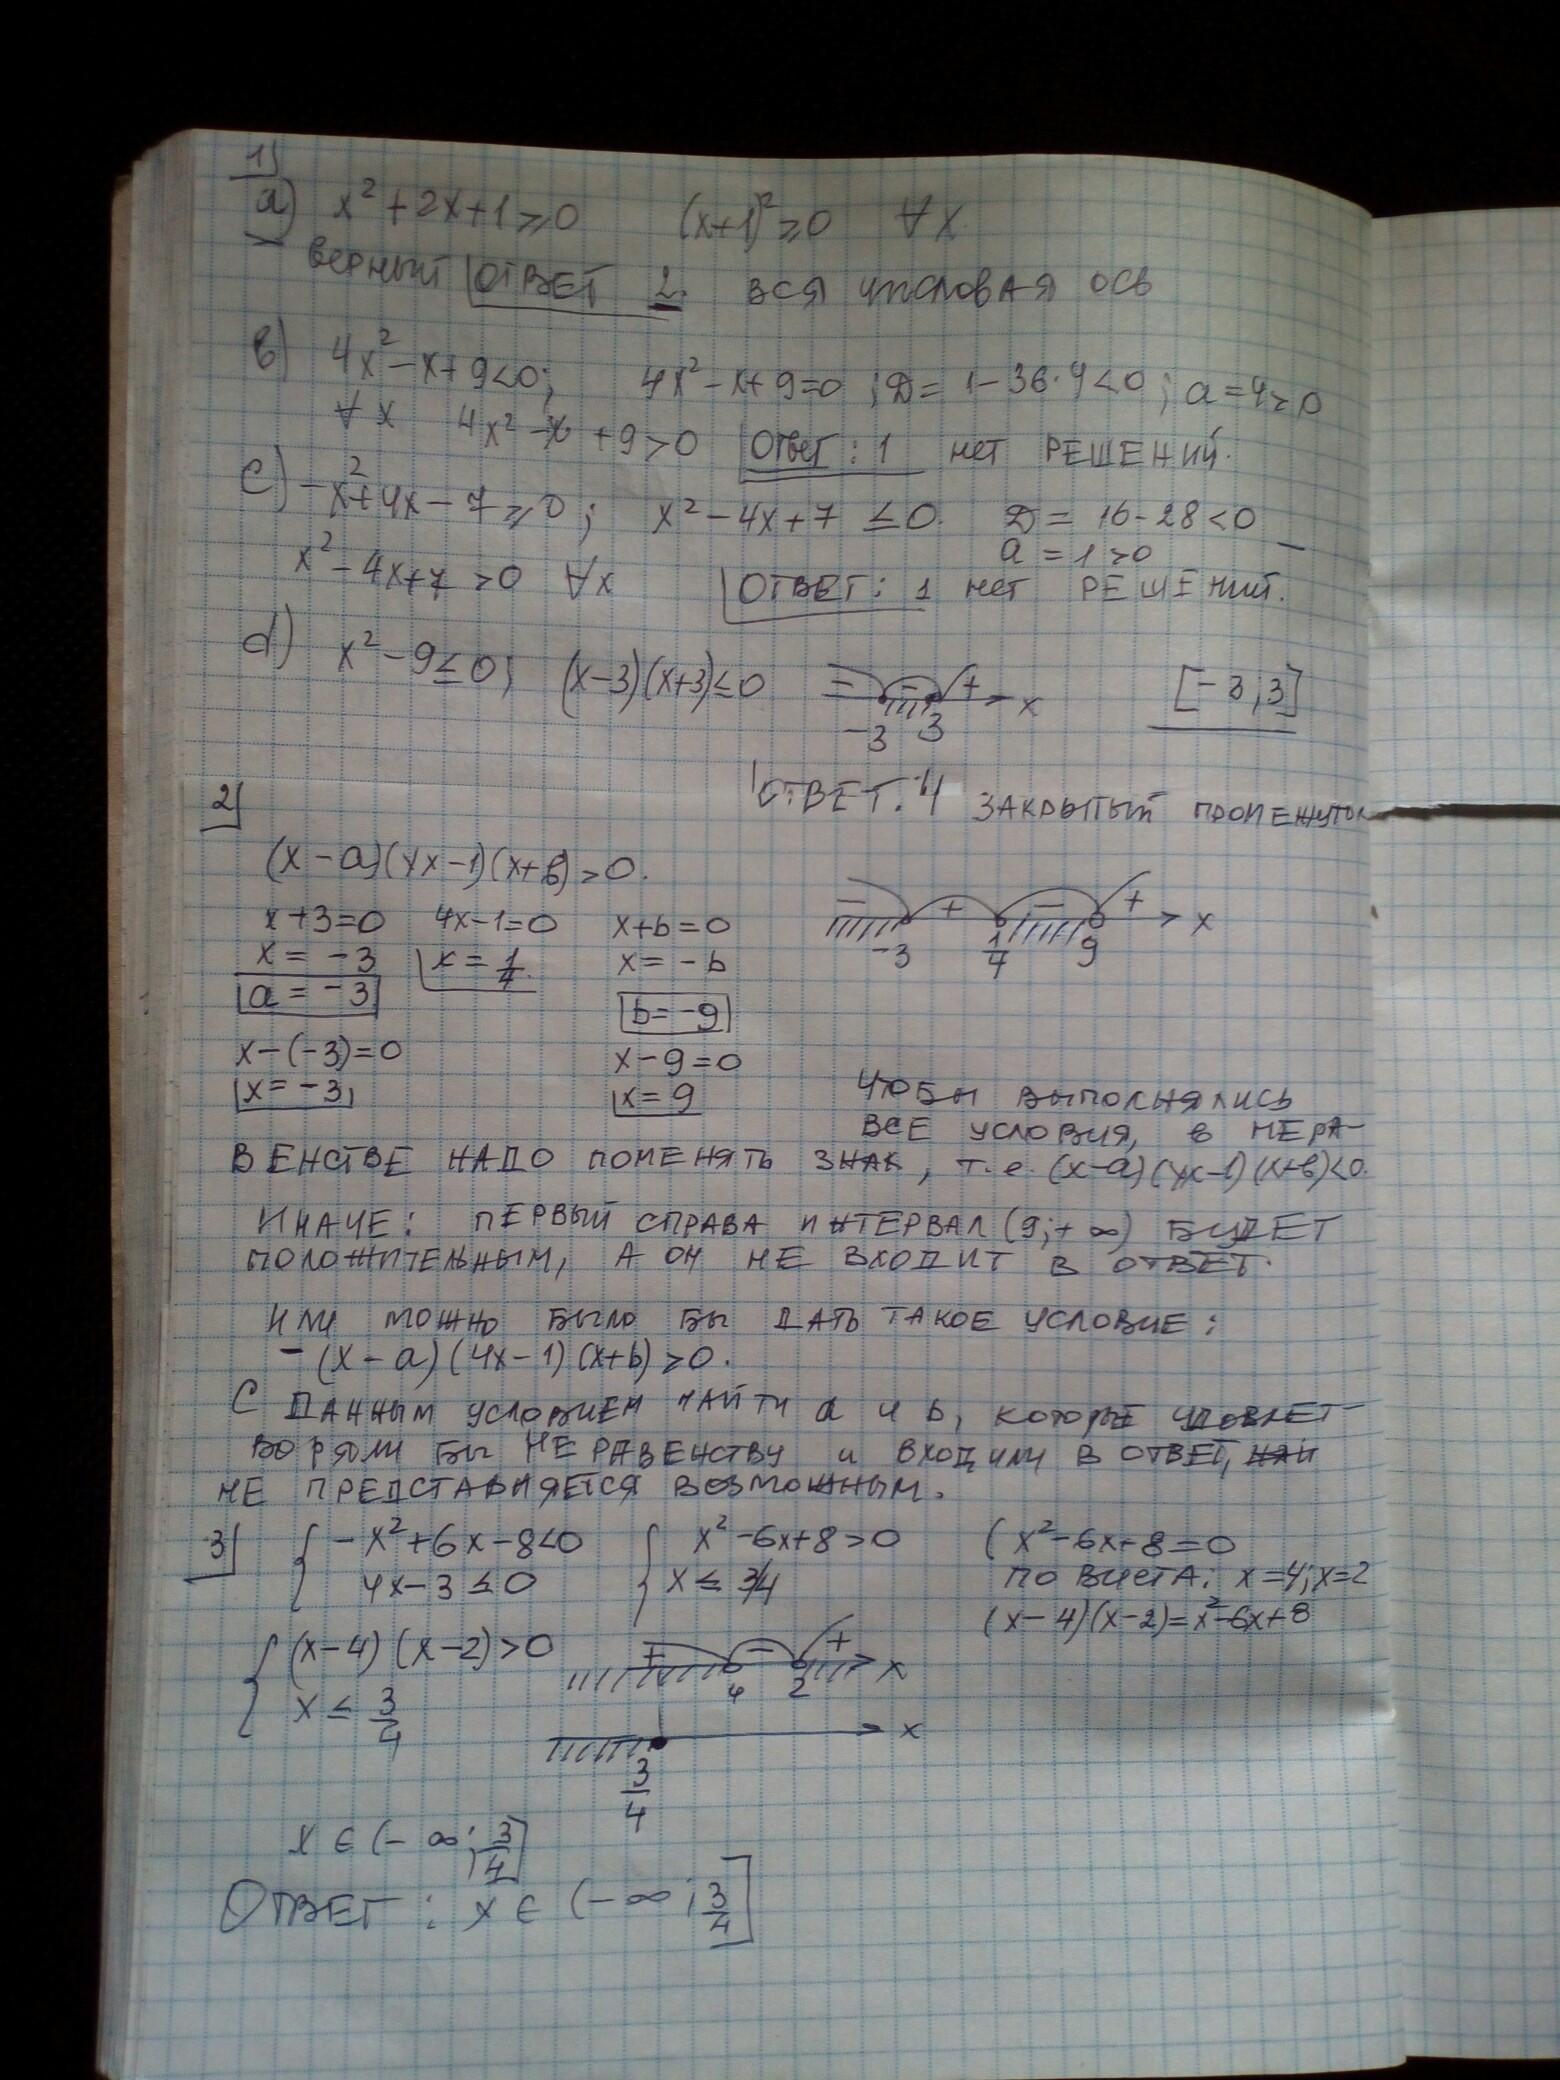 1)
a) x² + 2x + 1 ≥ 0 (x+1)² ≥ 0 ∀x
верный ОТВЕТ 2. ВСЯ числовая ось
в) 4x² - x + 9 < 0; 4x² - x + 9 = 0; D = 1 - 36·4 < 0; a = 4 > 0
∀x 4x² - x + 9 > 0 Ответ: 1 нет РЕШЕНИЙ.
c) -x² + 4x - 7 ≥ 0; x² - 4x + 7 ≤ 0. D = 16 - 28 < 0
a = 1 > 0
x² - 4x + 7 > 0 ∀x ОТВЕТ: 1 нет РЕШЕНИЙ.
d) x² - 9 ≤ 0; (x-3)(x+3) ≤ 0 - - + x [-3; 3]
-3 3
ОТВЕТ. 4 ЗАКРЫТЫЙ ПРОМЕЖУТОК
2)
(x - a)(4x-1)(x+в) > 0.
x+3=0 4x-1=0 x+b=0 - + - + x
x = -3 x = 1/4. x = -b -3 1/4 9
a = -3 b = -9
x-(-3)=0 x-9=0
x = -3 x = 9
ЧТОБЫ ВЫПОЛНЯЛИСЬ
ВСЕ УСЛОВИЯ, в НЕРА-
ВЕНСТВЕ НАДО ПОМЕНЯТЬ ЗНАК, т.е. (x-a)(4x-1)(x+в)<0.
ИНАЧЕ: ПЕРВЫЙ СПРАВА ИНТЕРВАЛ (9; +∞) БУДЕТ
ПОЛОЖИТЕЛЬНЫМ, А ОН НЕ ВХОДИТ В ОТВЕТ.
ИЛИ МОЖНО БЫЛО БЫ ДАТЬ ТАКОЕ УСЛОВИЕ:
-(x-a)(4x-1)(x+b) > 0.
С ДАННЫМ УСЛОВИЕМ НАЙТИ a и b, которые УДОВЛЕТ-
ВОРЯЛИ БЫ НЕРАВЕНСТВУ и ВХОДИЛИ В ОТВЕТ,
НЕ ПРЕДСТАВЛЯЕТСЯ ВОЗМОЖНЫМ.
3) { -x² + 6x - 8 < 0 { x² - 6x + 8 > 0 (x² - 6x + 8 = 0
4x - 3 ≤ 0 x ≤ 3/4 ПО ВИЕТА: x=4; x=2
(x-4)(x-2) = x² - 6x + 8
{ (x-4)(x-2) > 0 + - + x
x ≤ 3/4 4 2
x
3/4
x ∈ (-∞; 3/4]
Ответ: x ∈ (-∞; 3/4]